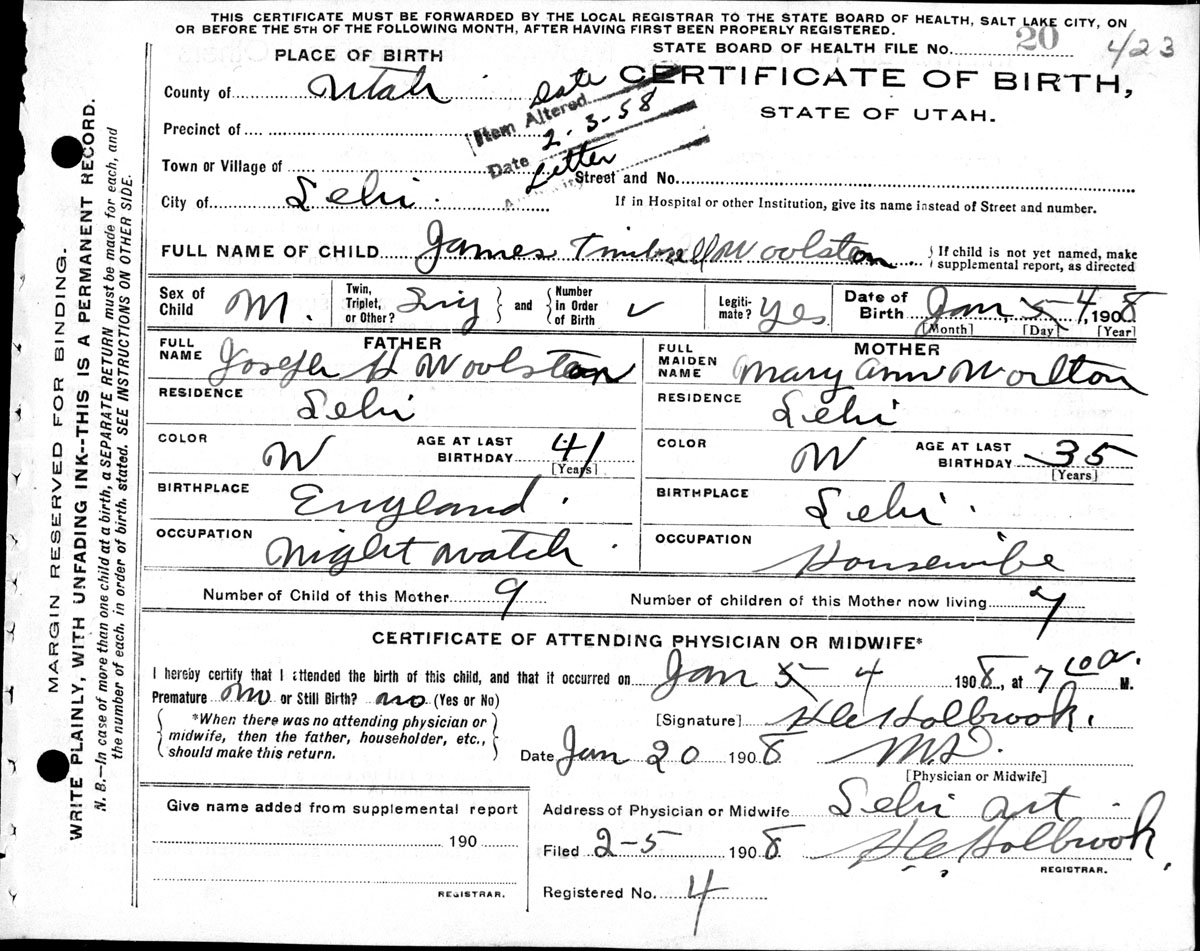 THIS CERTIFICATE MUST BE FORWARDED BY THE LOCAL REGISTRAR TO THE STATE BOARD OF HEALTH, SALT LAKE CITY, ON
OR BEFORE THE 5TH OF THE FOLLOWING MONTH, AFTER HAVING FIRST BEEN PROPERLY REGISTERED.
PLACE OF BIRTH
STATE BOARD OF HEALTH FILE No. 20 423
CERTIFICATE OF BIRTH,
STATE OF UTAH.
County of Utah
Item Altered Date
Date 2-3-58
Letter
Precinct of
Town or Village of
Street and No.
City of Lehi.
If in Hospital or other Institution, give its name instead of Street and number.
FULL NAME OF CHILD James Timbrell Woolston
If child is not yet named, make
supplemental report, as directed
Sex of Child M. Twin, Triplet, or Other? Sing and Number in Order of Birth Legiti-mate? Yes Date of Birth Jan 5 4, 1908
[Month] [Day] [Year]
FATHER
FULL NAME Joseph H Woolston
RESIDENCE Lehi
COLOR W AGE AT LAST BIRTHDAY 41
[Years]
BIRTHPLACE England.
OCCUPATION Night watch
MOTHER
FULL MAIDEN NAME Mary Ann Worlton
RESIDENCE Lehi
COLOR W AGE AT LAST BIRTHDAY 35
[Years]
BIRTHPLACE Lehi.
OCCUPATION Housewife
Number of Child of this Mother 9 Number of children of this Mother now living 7
CERTIFICATE OF ATTENDING PHYSICIAN OR MIDWIFE*
I hereby certify that I attended the birth of this child, and that it occurred on Jan 5 4 1908, at 7 10 a. M.
Premature no or Still Birth? no (Yes or No)
*When there was no attending physician or
midwife, then the father, householder, etc.,
should make this return.
[Signature] H C Holbrook.
Date Jan 20 1908 M.D.
[Physician or Midwife]
Give name added from supplemental report
190
REGISTRAR.
Address of Physician or Midwife Lehi
Filed 2-5 1908 H.C. Holbrook,
REGISTRAR.
Registered No. 4
MARGIN RESERVED FOR BINDING.
WRITE PLAINLY, WITH UNFADING INK--THIS IS A PERMANENT RECORD.
N. B.—In case of more than one child at a birth, a SEPARATE RETURN must be made for each, and
the number of each, in order of birth, stated. SEE INSTRUCTIONS ON OTHER SIDE.